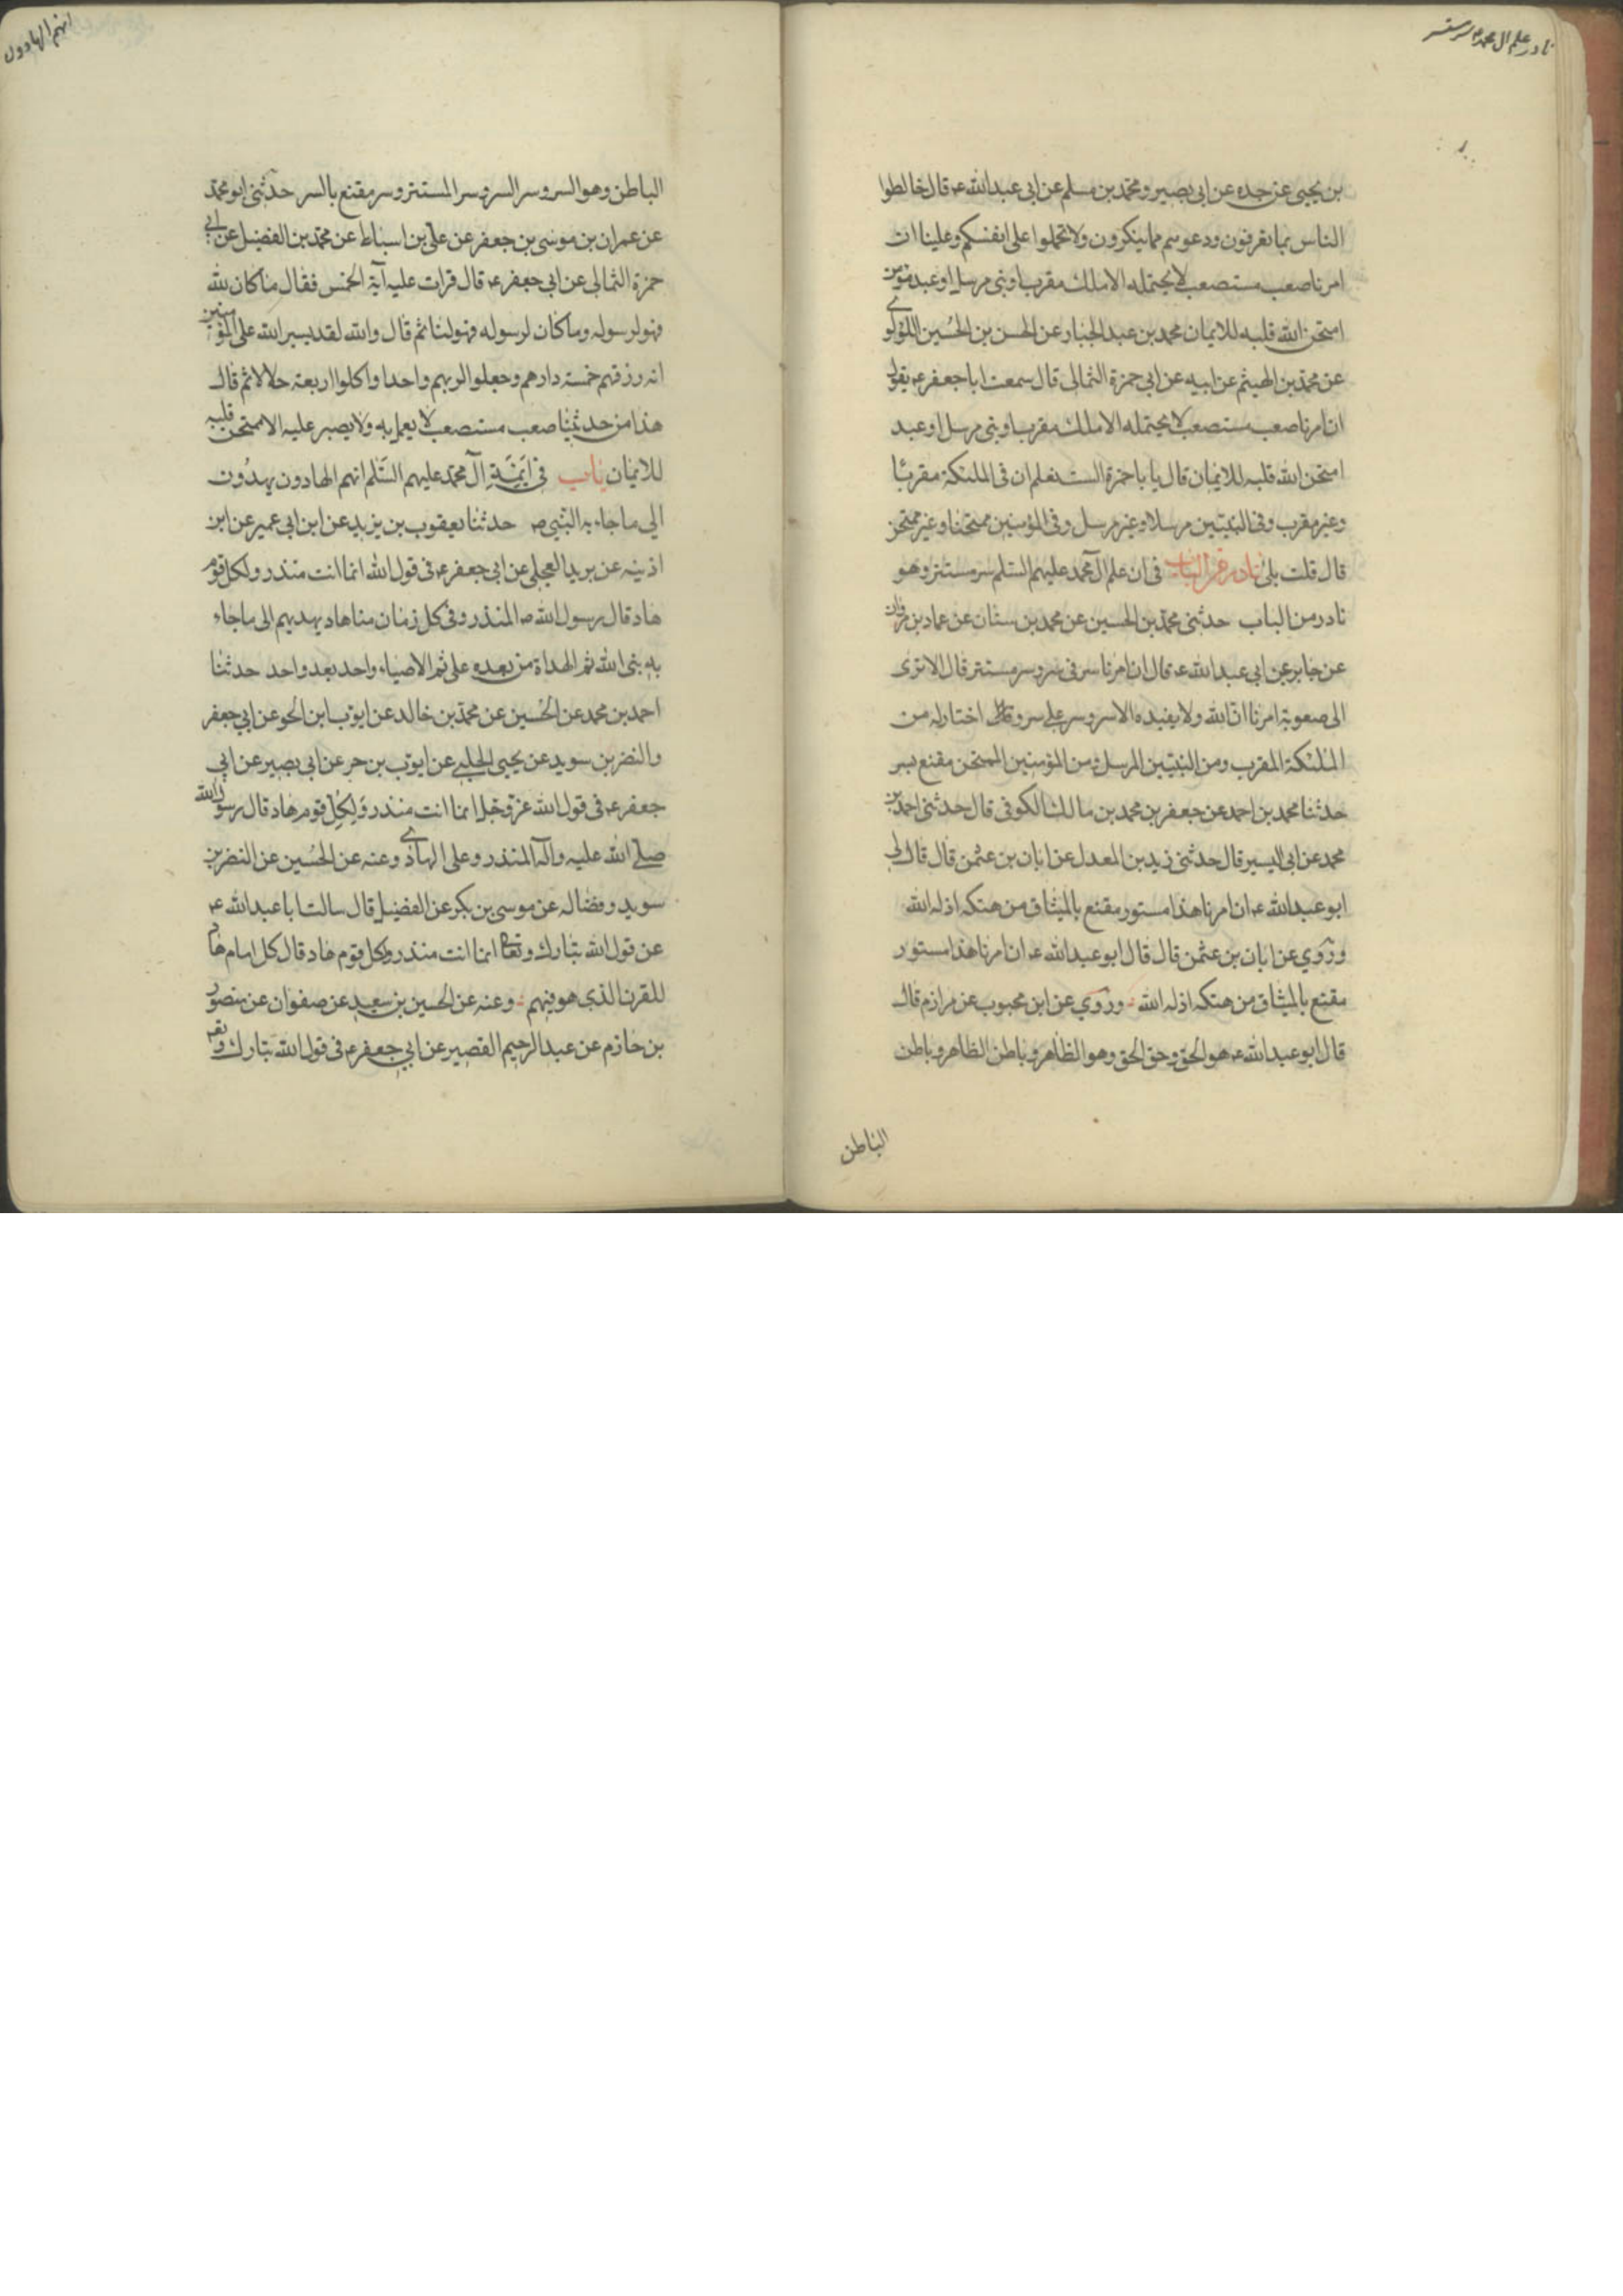 نادر علم ال محمد سر مستتر
بن يحيى عن جده عن ابى بصير ومحمد بن مسلم عن ابى عبد الله ع قال خالطوا
الناس بما يعرفون ودعوهم مما ينكرون ولا تحملوا على انفسكم وعلينا ان
امرنا صعب مستصعب لا يحتمله الا ملك مقرب او نبى مرسل او عبد مؤمن
امتحن الله قلبه للايمان محمد بن عبد الجبار عن الحسن بن الحسين اللؤلؤى
عن محمد بن الهيثم عن ابيه عن ابى حمزة الثمالى قال سمعت ابا جعفر ع يقول
ان امرنا صعب مستصعب لا يحتمله الا ملك مقرب او نبى مرسل او عبد
امتحن الله قلبه للايمان قال يا باحمزة الست تعلم ان فى الملئكة مقربا
وغير مقرب وفى النبيين مرسلا وغير مرسل وفى المؤمنين ممتحنا وغير ممتحن
قال قلت بلى نادر من الباب فى ان علم آل محمد عليهم السلم سر مستتر وهو
نادر من الباب حدثنى محمد بن الحسين عن محمد بن سنان عن عماد بن مروان
عن جابر عن ابى عبد الله ع قال ان امرنا سر فى سر وسر مستتر قال الا ترى
الى صعوبة امرنا ان الله ولا يفيده الا سر وسر على سر وقال اختار له من
الملئكة المقرب ومن النبيين المرسل ومن المؤمنين الممتحن مقنع بسر
حدثنا محمد بن احمد عن جعفر بن محمد بن مالك الكوفى قال حدثنى احمد بن
محمد عن ابى اليسير قال حدثنى زيد بن المعدل عن ابان بن عثمن قال قال لى
ابو عبد الله ع ان امرنا هذا مستور مقنع بالميثاق من هتكه اذله الله
وروي عن ابان بن عثمن قال قال ابو عبد الله ع ان امرنا هذا مستور
مقنع بالميثاق من هتكه اذله الله وروي عن ابن محبوب عن مرازم قال
قال ابو عبد الله ع هو الحق وحق الحق وهو الظاهر وباطن الظاهر وباطن
الباطن
انهم الهادون
الباطن وهو السر وسر السر وسر المستتر وسر مقنع بالسر حدثنى ابو محمد
عن عمران بن موسى بن جعفر عن على بن اسباط عن محمد بن الفضيل عن ابي
حمزة الثمالى عن ابى جعفر ع قال قرات عليه آية الخمس فقال ما كان لله
فهو لرسوله وما كان لرسوله فهو لنا ثم قال والله لقد يسير الله على المؤمنين
انه رزقهم خمسة دارهم وجعلوا لربهم واحدا واكلوا اربعة حلالا ثم قال
هذا من حديثنا صعب مستصعب لا يعمل به ولا يصبر عليه الا ممتحن قلبه
للايمان باب فى ائمة آل محمد عليهم السلم انهم الهادون يهدون
الى ما جاء به النبي ص حدثنا يعقوب بن يزيد عن ابن ابى عمير عن ابن
اذينه عن بريد العجلى عن ابى جعفر ع فى قول الله انما انت منذر ولكل قوم
هاد قال رسول الله ص المنذر وفى كل زمان منا هاد يهديهم الى ما جاء
به نبى الله ثم الهداة من بعده على ثم الاصياء واحد بعد واحد حدثنا
احمد بن محمد عن الحسين عن محمد بن خالد عن ايوب ابن الحو عن ابي جعفر
والنضر بن سويد عن يحيى الحلبي عن ايوب بن حر عن ابى بصير عن ابي
جعفر ع فى قول الله عز وجل انما انت منذر ولكل قوم هاد قال رسول الله
صلى الله عليه واله المنذر وعلى الهادي وعنه عن الحسين عن النضر بن
سويد وفضاله عن موسى بن بكر عن الفضيل قال سالت ابا عبد الله ع
عن قول الله تبارك وتعالى انما انت منذر ولكل قوم هاد قال كل امام هاد
للقرن الذى هو فيهم وعنه عن الحسين بن سعيد عن صفوان عن منصور
بن حازم عن عبد الرحيم القصير عن ابي جعفر ع فى قول الله تبارك وتعالى